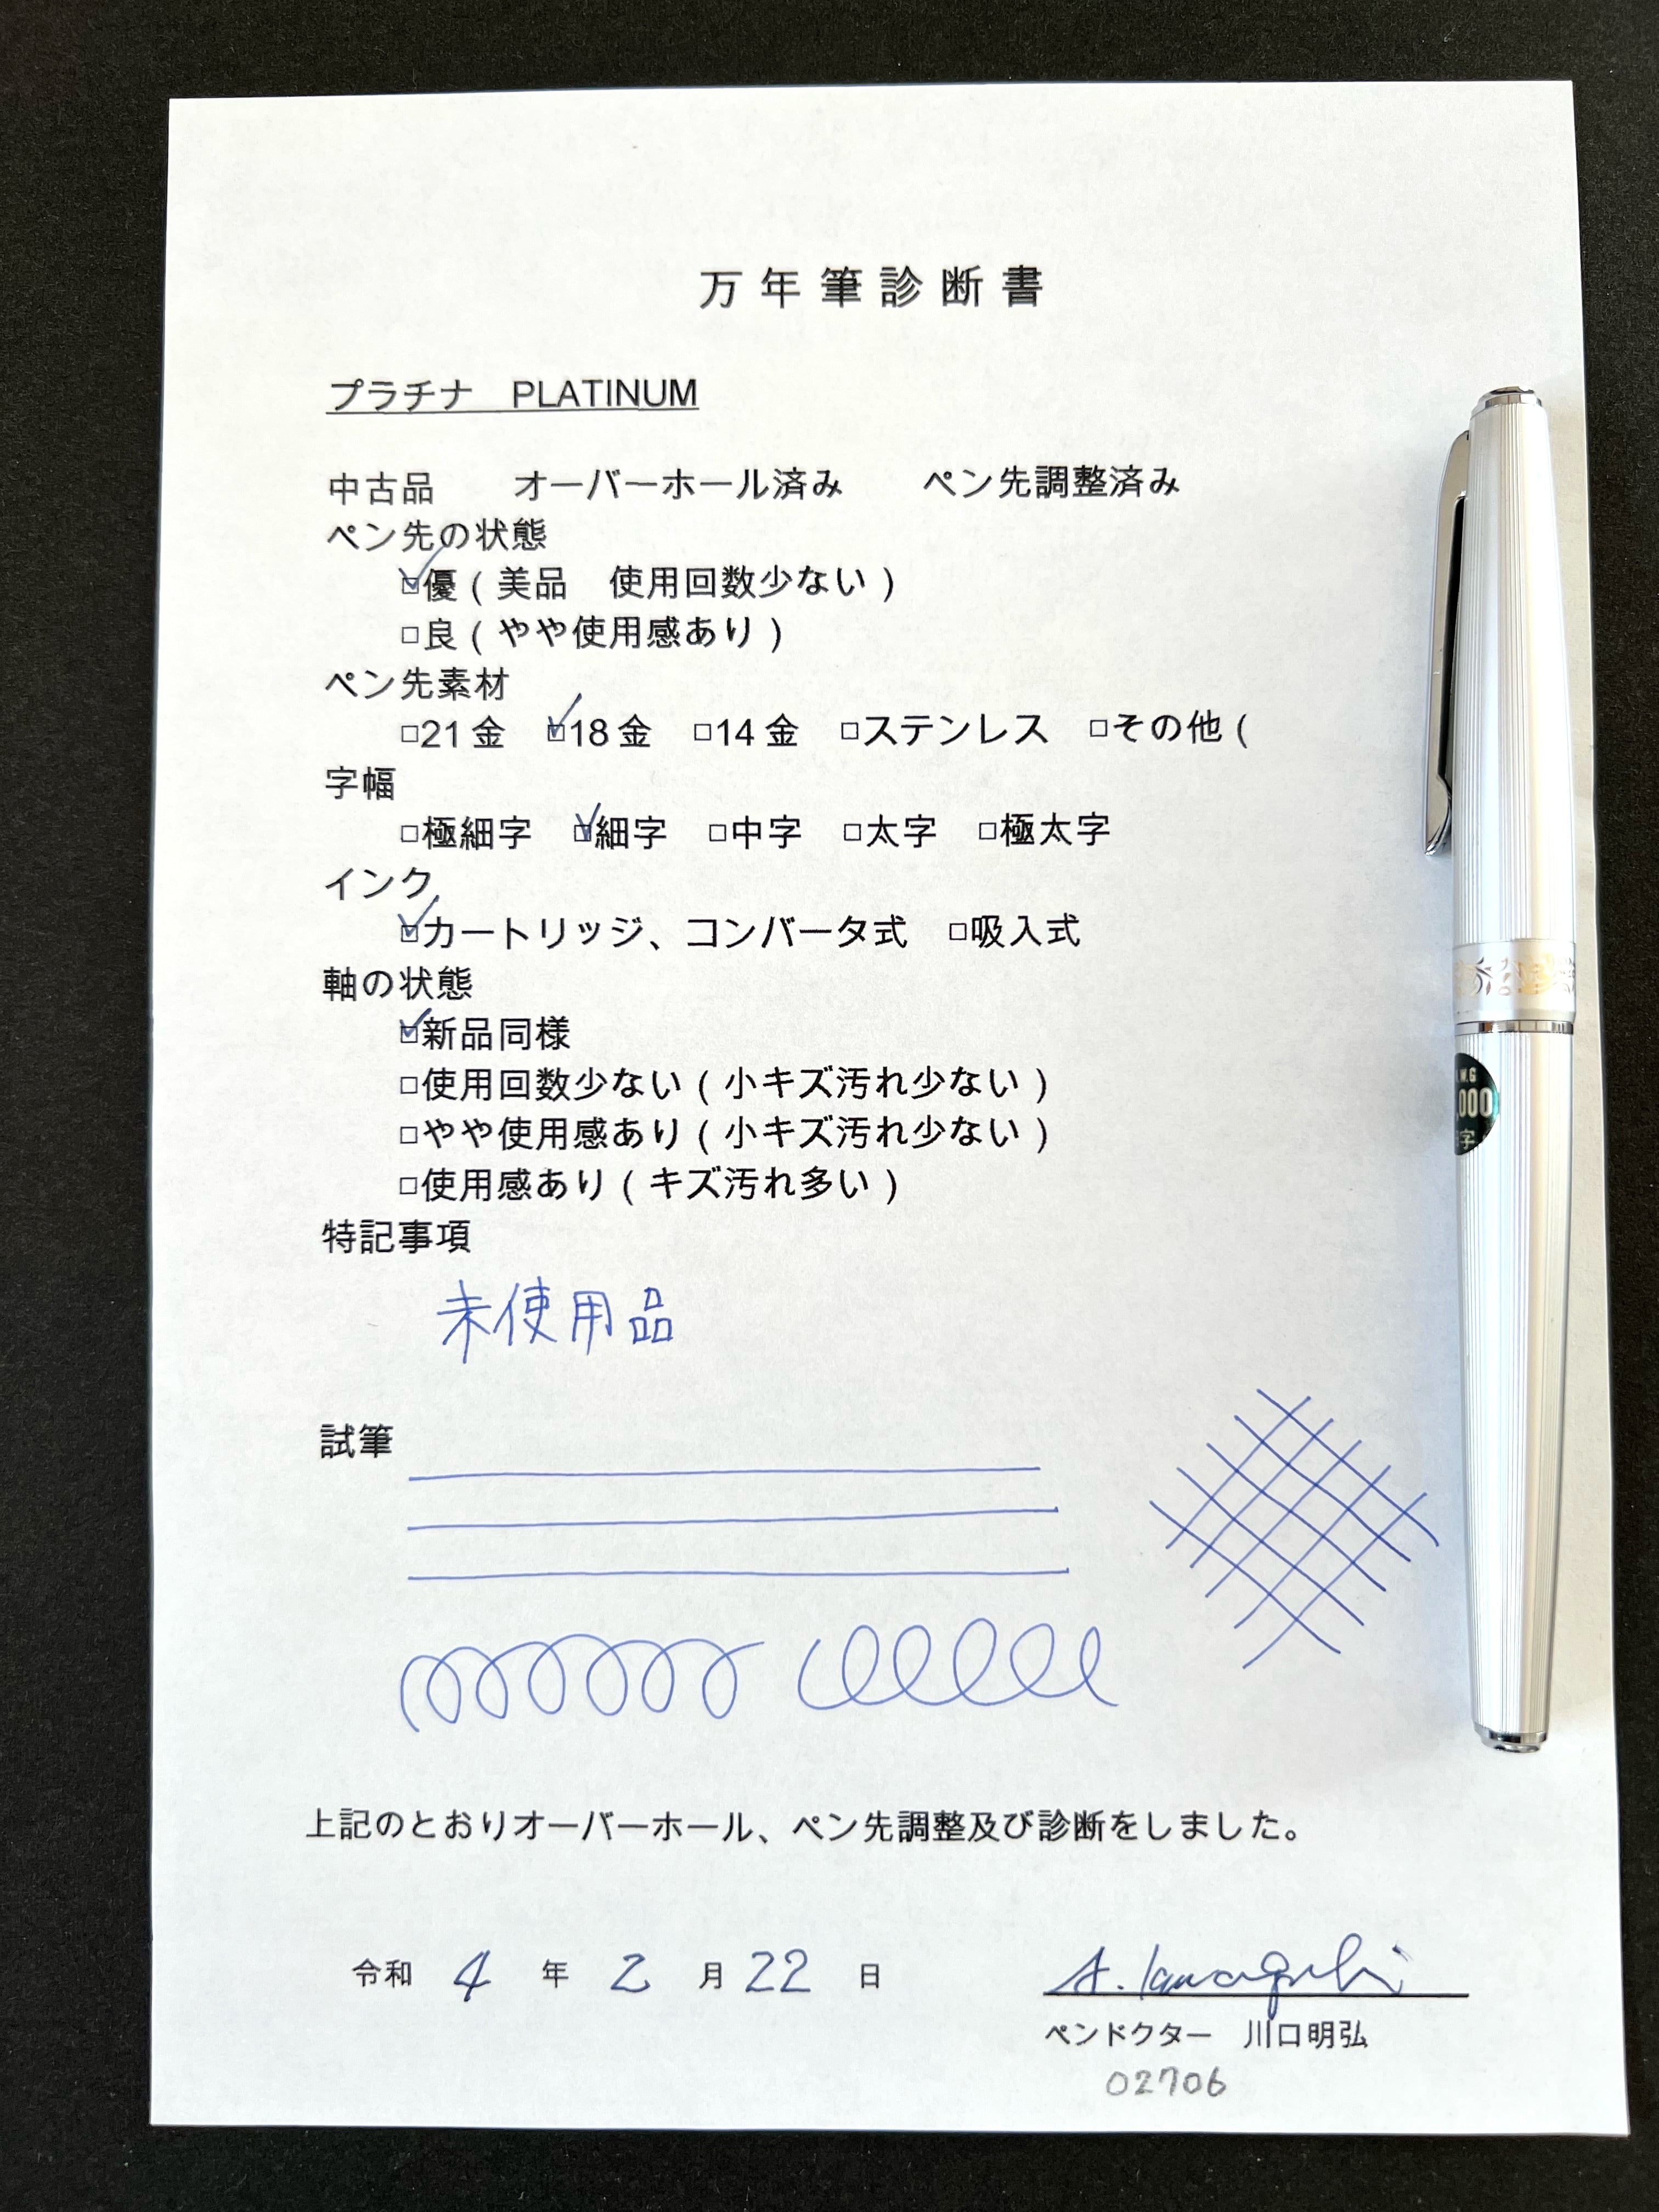 万年筆診断書
プラチナ PLATINUM
中古品 オーバーホール済み ペン先調整済み
ペン先の状態
☑優(美品 使用回数少ない)
□良(やや使用感あり)
ペン先素材
□21金 ☑18金 □14金 □ステンレス □その他(
字幅
□極細字 ☑細字 □中字 □太字 □極太字
インク
☑カートリッジ、コンバータ式 □吸入式
軸の状態
☑新品同様
□使用回数少ない(小キズ汚れ少ない)
□やや使用感あり(小キズ汚れ少ない)
□使用感あり(キズ汚れ多い)
特記事項
未使用品
試筆
上記のとおりオーバーホール、ペン先調整及び診断をしました。
令和 4 年 2 月 22 日
A. Kawaguchi
ペンドクター 川口明弘
02706
W.G
000
字